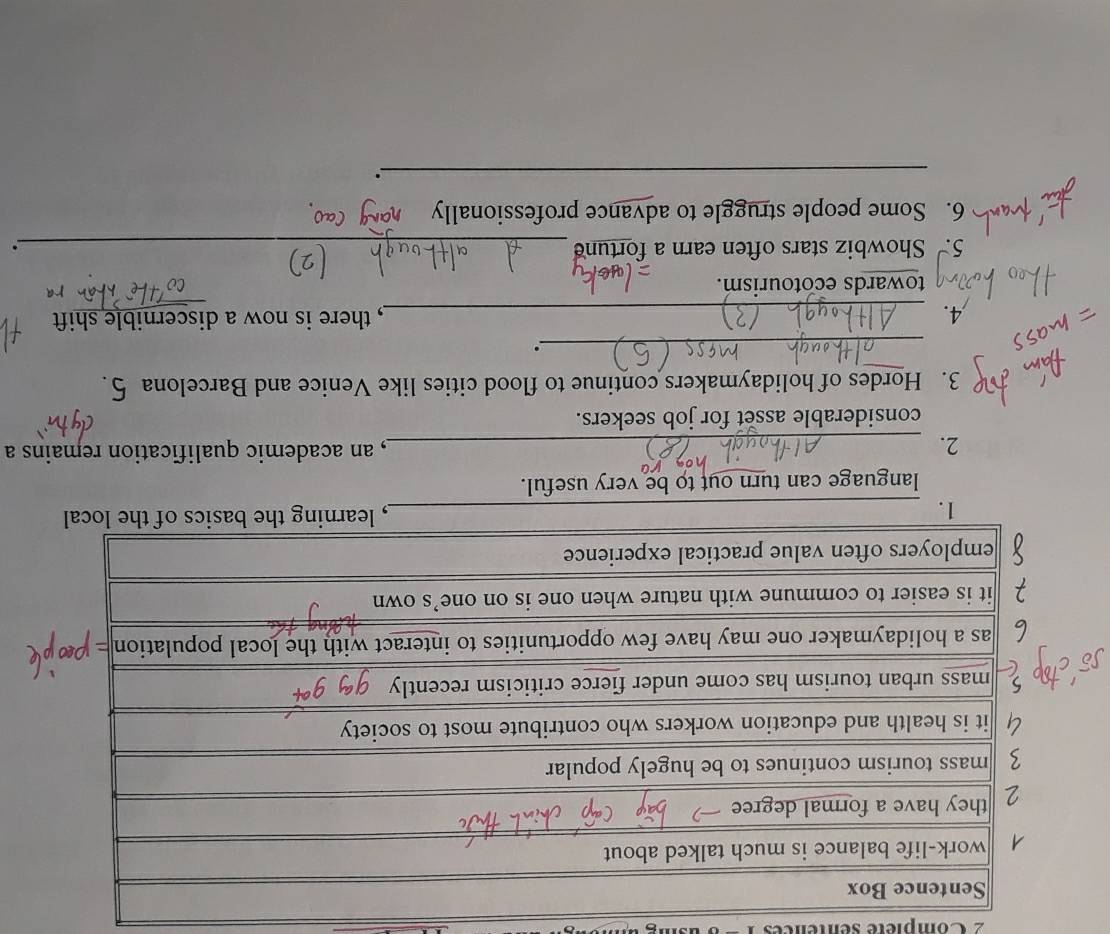 2 Complete sentences 1 – 6 using
Sentence Box
1 work-life balance is much talked about
2 they have a formal degree → bằng cấp chính thức
3 mass tourism continues to be hugely popular
4 it is health and education workers who contribute most to society
5 mass urban tourism has come under fierce criticism recently gay gắt
6 as a holidaymaker one may have few opportunities to interact with the local population = people
7 it is easier to commune with nature when one is on one's own
8 employers often value practical experience
1. , learning the basics of the local
language can turn out to be very useful.
hoá ra
2. Although (8) , an academic qualification remains a
considerable asset for job seekers.
3. Hordes of holidaymakers continue to flood cities like Venice and Barcelona 5.
although mass (5) .
= mass
4. Although (3) , there is now a discernible shift
có thể nhận ra
theo hướng towards ecotourism.
5. Showbiz stars often earn a fortune although (2) .
= lucky
6. Some people struggle to advance professionally nâng cao.
.